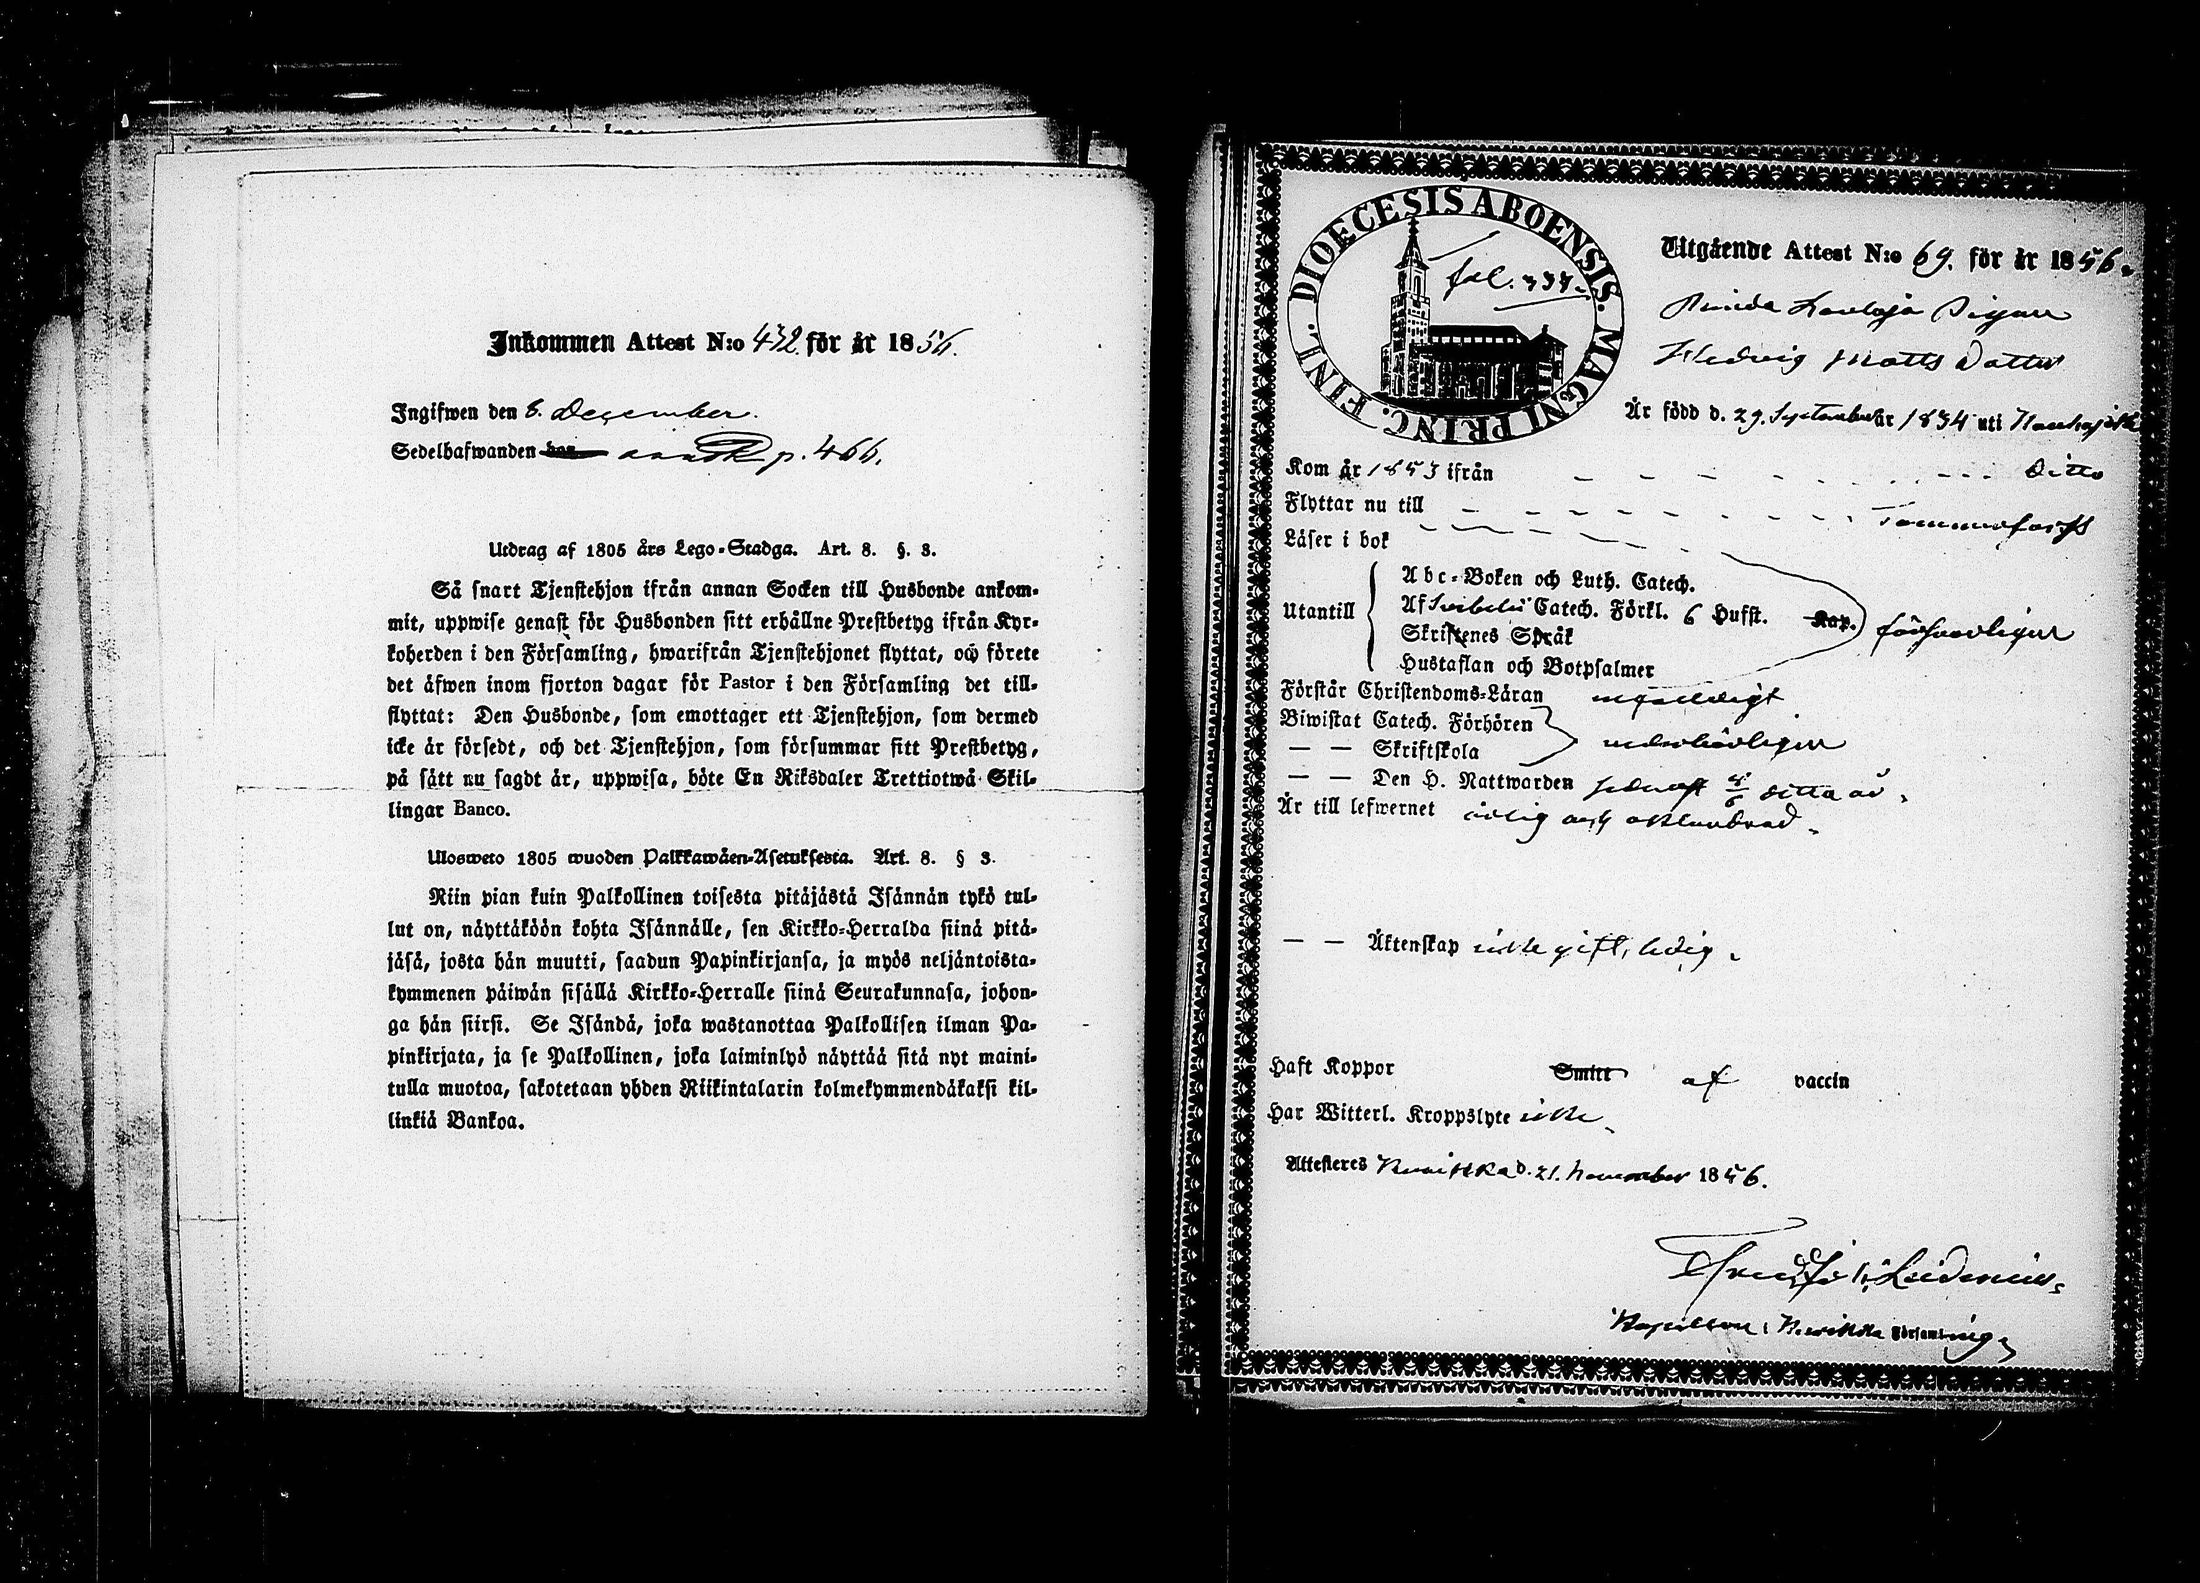 Inkommen Attest N:o 432. för år 1856.
Ingifwen den 8. December.
Sedelhafwanden har p. 466.
Utdrag af 1805 års Lego-Stadga. Art. 8. §. 3.
Så snart Tjenstehjon ifrån annan Socken till Husbonde ankom-
mit, uppwise genast för Husbonden sitt erhållne Prestbetyg ifrån Kyr-
koherden i den Församling, hwarifrån Tjenstehjonet flyttat, och förete
det äfwen inom fjorton dagar för Pastor i den Församling det till-
flyttat: Den Husbonde, som emottager ett Tjenstehjon, som dermed
icke är försedt, och det Tjenstehjon, som försummar sitt Prestbetyg,
på sätt nu sagdt är, uppwisa, böte En Riksdaler Trettiotwå Skil-
lingar Banco.
Ulosweto 1805 wuoden Palkkawäen-Asetuksesta. Art. 8. § 3.
Niin pian kuin Palkollinen toisesta pitäjästä Isännän tykö tul-
lut on, näyttäköön kohta Isännälle, sen Kirkko-Herralda siinä pitä-
jäsä, josta hän muutti, saadun Papinkirjansa, ja myös neljäntoista-
kymmenen päiwän sisällä Kirkko-Herralle siinä Seurakunnasa, johon-
ga hän siirsi. Se Isändä, joka wastanottaa Palkollisen ilman Pa-
pinkirjata, ja se Palkollinen, joka laiminlyö näyttää sitä nyt maini-
tulla muotoa, sakotetaan yhden Riikintalarin kolmekymmendäkaksi kil-
linkiä Bankoa.
DIOECESIS ABOENSIS. MAGNI PRINC. FINL.
fol. 434.
Utgående Attest N:o 69. för år 1856.
Pigan
Hedvig Matts Dotter
Är född d. 29. September år 1834 uti
Kom år 1853 ifrån Ditto
Flyttar nu till Tammerfors
Läser i bok
Abc-Boken och Luth. Catech.
Utantill Af Svebelii Catech. Förkl. 6 Hufst. Kap. försvarligen
Skriftenes Språk
Hustaflan och Botpsalmer
Förstår Christendoms-Läran
Biwistat Catech. Förhören
— — Skriftskola vederbörligen
— — Den H. Nattwarden senast 8/6 detta år.
Är till lefwernet ärlig och oklandrad.
— — Äktenskap icke gift, ledig.
Haft Koppor Smitt af vaccin
Har Witterl. Kroppslyte icke
Attesteres d. 21. November 1856.
Kapellan i Församling